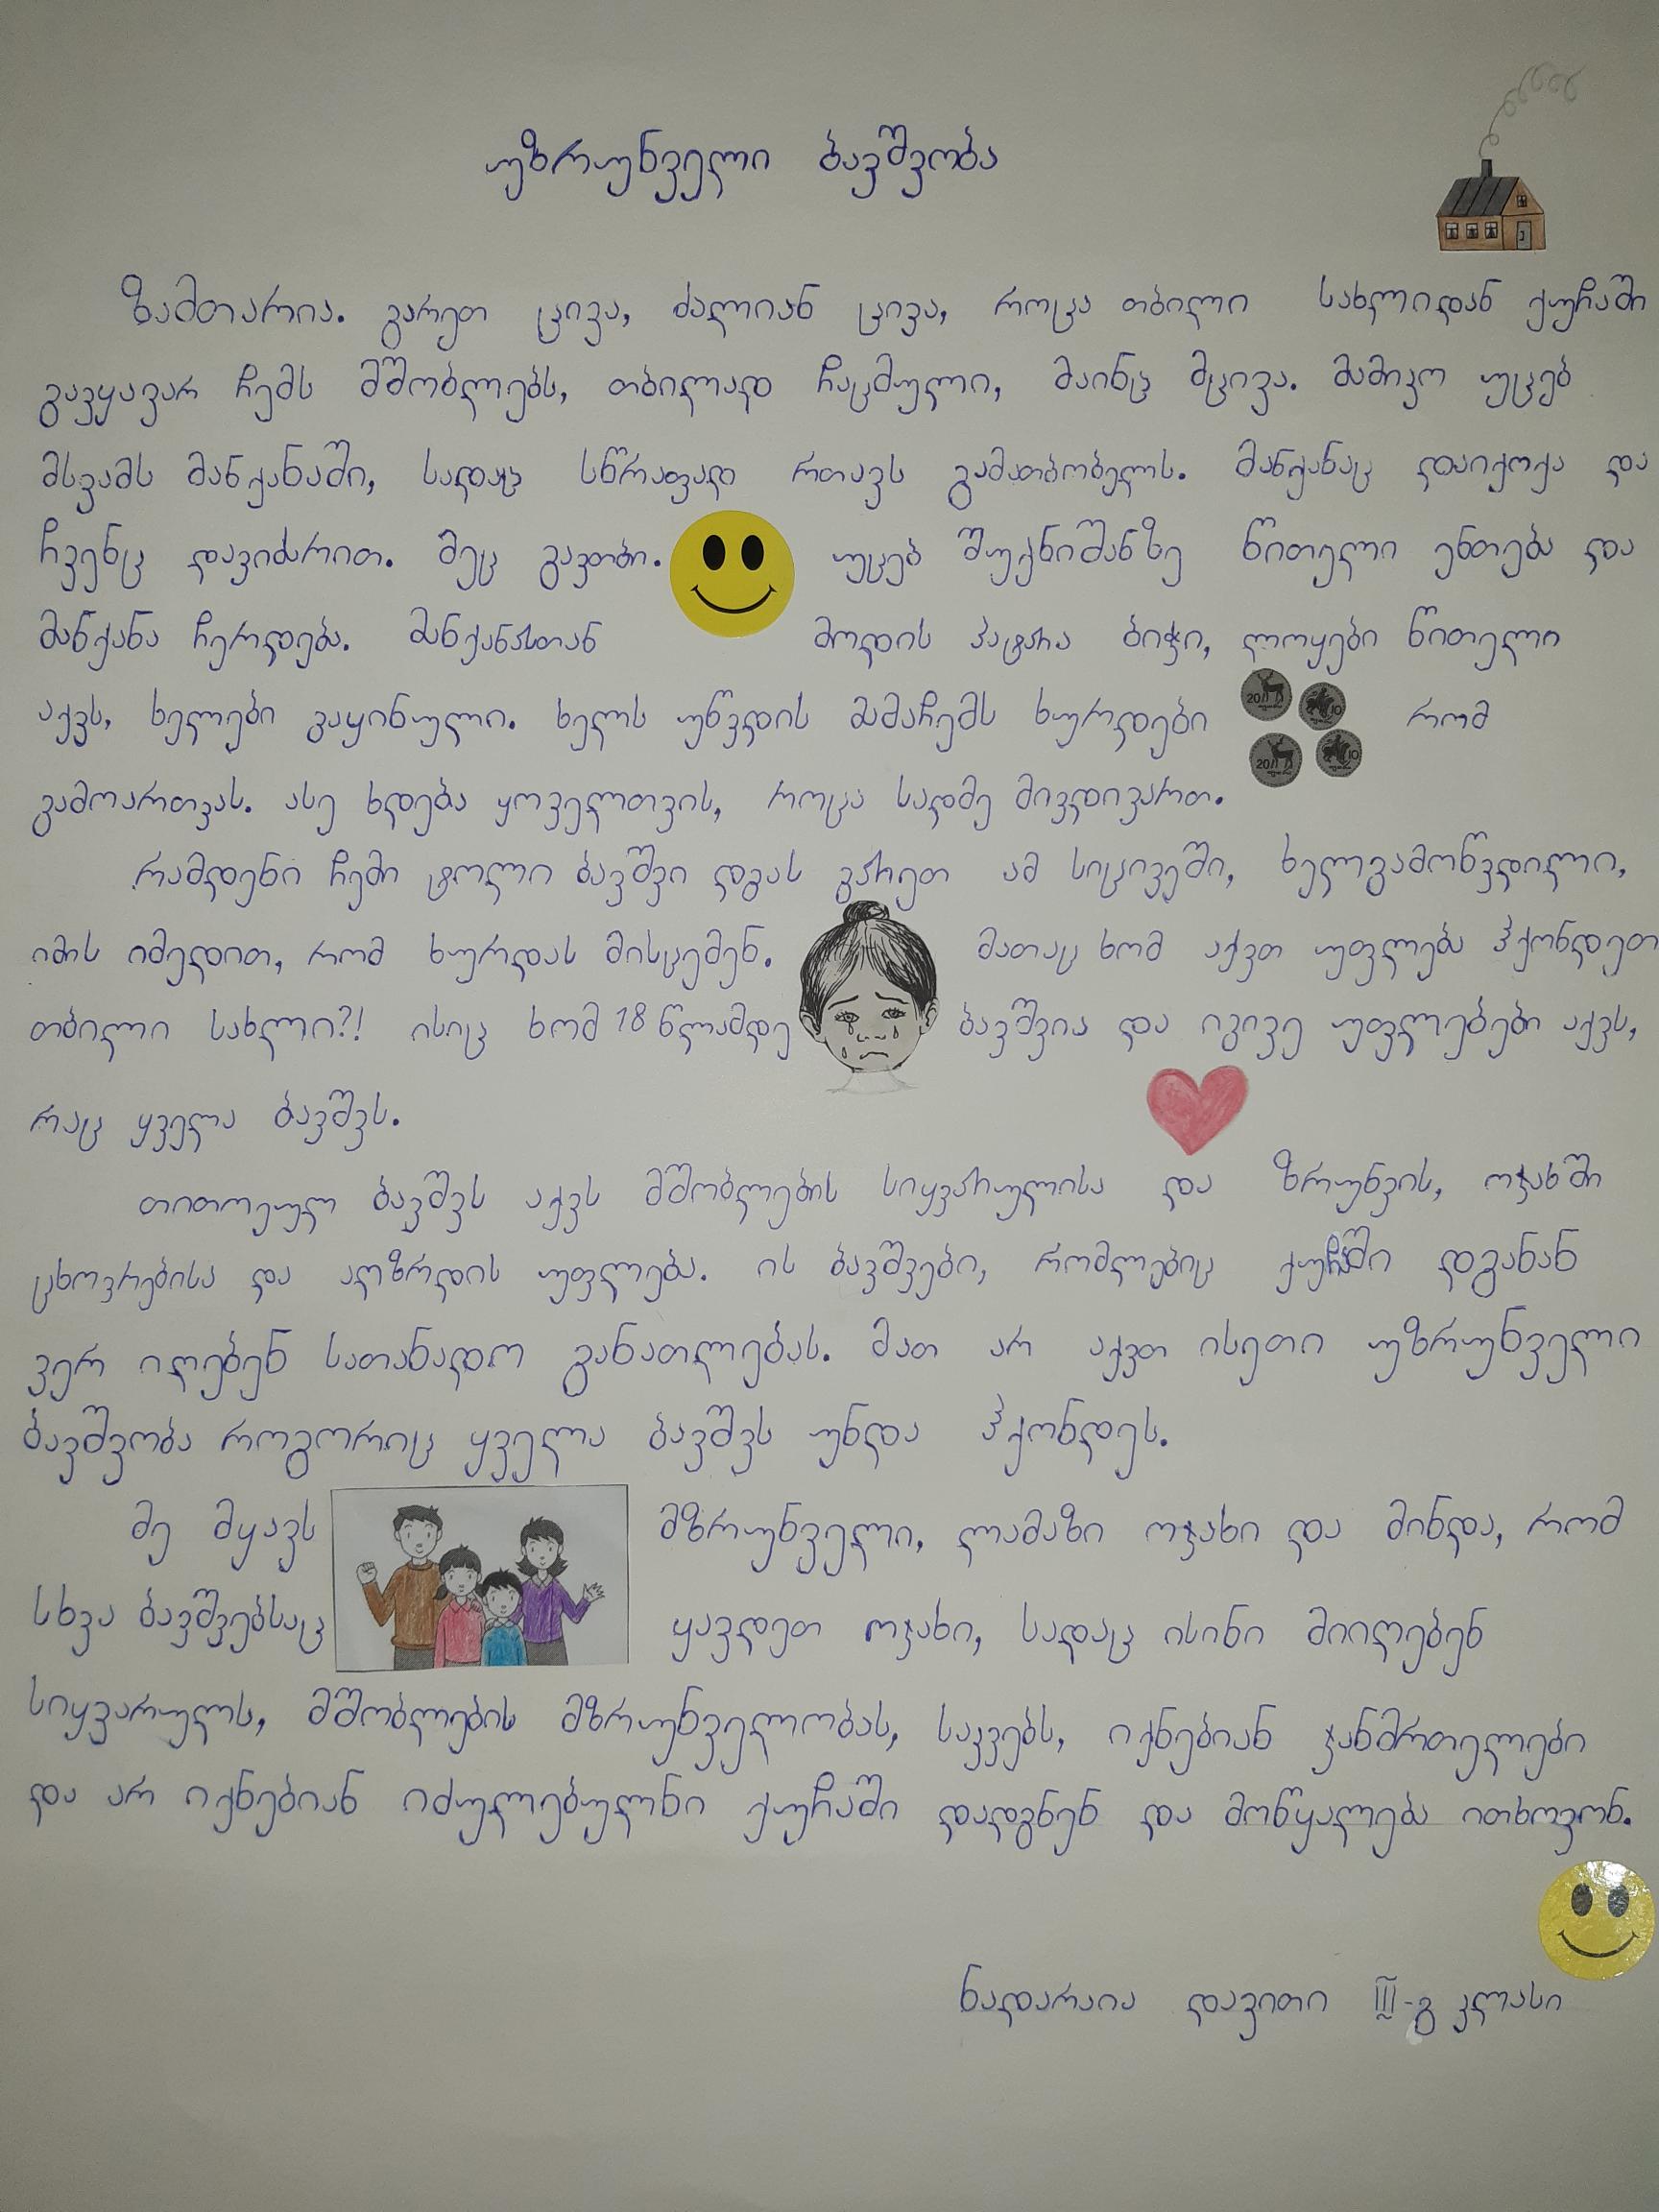 უზრუნველი ბავშვობა
ზამთარია. გარეთ ცივა, ძალიან ცივა, როცა თბილი სახლიდან ქუჩაში
გავყავარ ჩემს მშობლებს, თბილად ჩაცმული, მაინც მცივა. მამიკო უცებ
მსვამს მანქანაში, სადაც სწრაფად რთავს გამათბობელს. მანქანაც დაიქოქა და
ჩვენც დავიძარით. მეც გავთბი. უცებ შუქნიშანზე წითელი ენთება და
მანქანა ჩერდება. მანქანასთან მოდის პატარა ბიჭი, ლოყები წითელი
აქვს, ხელები გაყინული. ხელს უწვდის მამაჩემს ხურდები რომ
გამოართვას. ასე ხდება ყოველთვის, როცა სადმე მივდივართ.
რამდენი ჩემი ტოლი ბავშვი დგას გარეთ ამ სიცივეში, ხელგამოწვდილი,
იმის იმედით, რომ ხურდას მისცემენ. მათაც ხომ აქვთ უფლება ჰქონდეთ
თბილი სახლი?! ისიც ხომ 18 წლამდე ბავშვია და იგივე უფლებები აქვს,
რაც ყველა ბავშვს.
თითოეულ ბავშვს აქვს მშობლების სიყვარულისა და ზრუნვის, ოჯახში
ცხოვრებისა და აღზრდის უფლება. ის ბავშვები, რომლებიც ქუჩაში დგანან
ვერ იღებენ სათანადო განათლებას. მათ არ აქვთ ისეთი უზრუნველი
ბავშვობა როგორიც ყველა ბავშვს უნდა ჰქონდეს.
მე მყავს მზრუნველი, ლამაზი ოჯახი და მინდა, რომ
სხვა ბავშვებსაც ყავდეთ ოჯახი, სადაც ისინი მიიღებენ
სიყვარულს, მშობლების მზრუნველობას, საკვებს, იქნებიან ჯანმრთელები
და არ იქნებიან იძულებულნი ქუჩაში დადგნენ და მოწყალება ითხოვონ.
ნადარაია დავითი III-გ კლასი